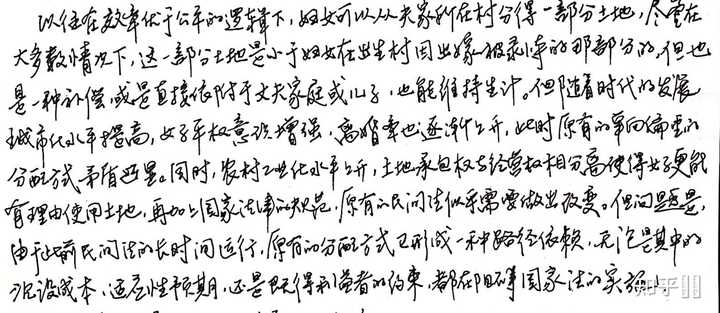 以往在效率优于公平的逻辑下，妇女可以从夫家所在村分得一部分土地，尽管在
大多数情况下，这一部分土地是小于妇女在出生村因出嫁被剥夺的那部分的，但也
是一种补偿，或是直接依附于丈夫家庭或儿子，也能维持生计。但随着时代的发展
城市化水平提高，女子平权意识增强，离婚率也逐渐上升，此时原有的单向偏重的
分配方式矛盾凸显。同时，农村工业化水平上升，土地承包权与经营权相分离使得女子更能
有理由使用土地，再加上国家法律的规范，原有的民间法似乎需要做出改变。但问题是，
由于此前民间法的长时间运行，原有的分配方式已形成一种路径依赖，无论是其中的
沉没成本，适应性预期，还是既得利益者的约束，都在阻碍国家法的实施。
知乎